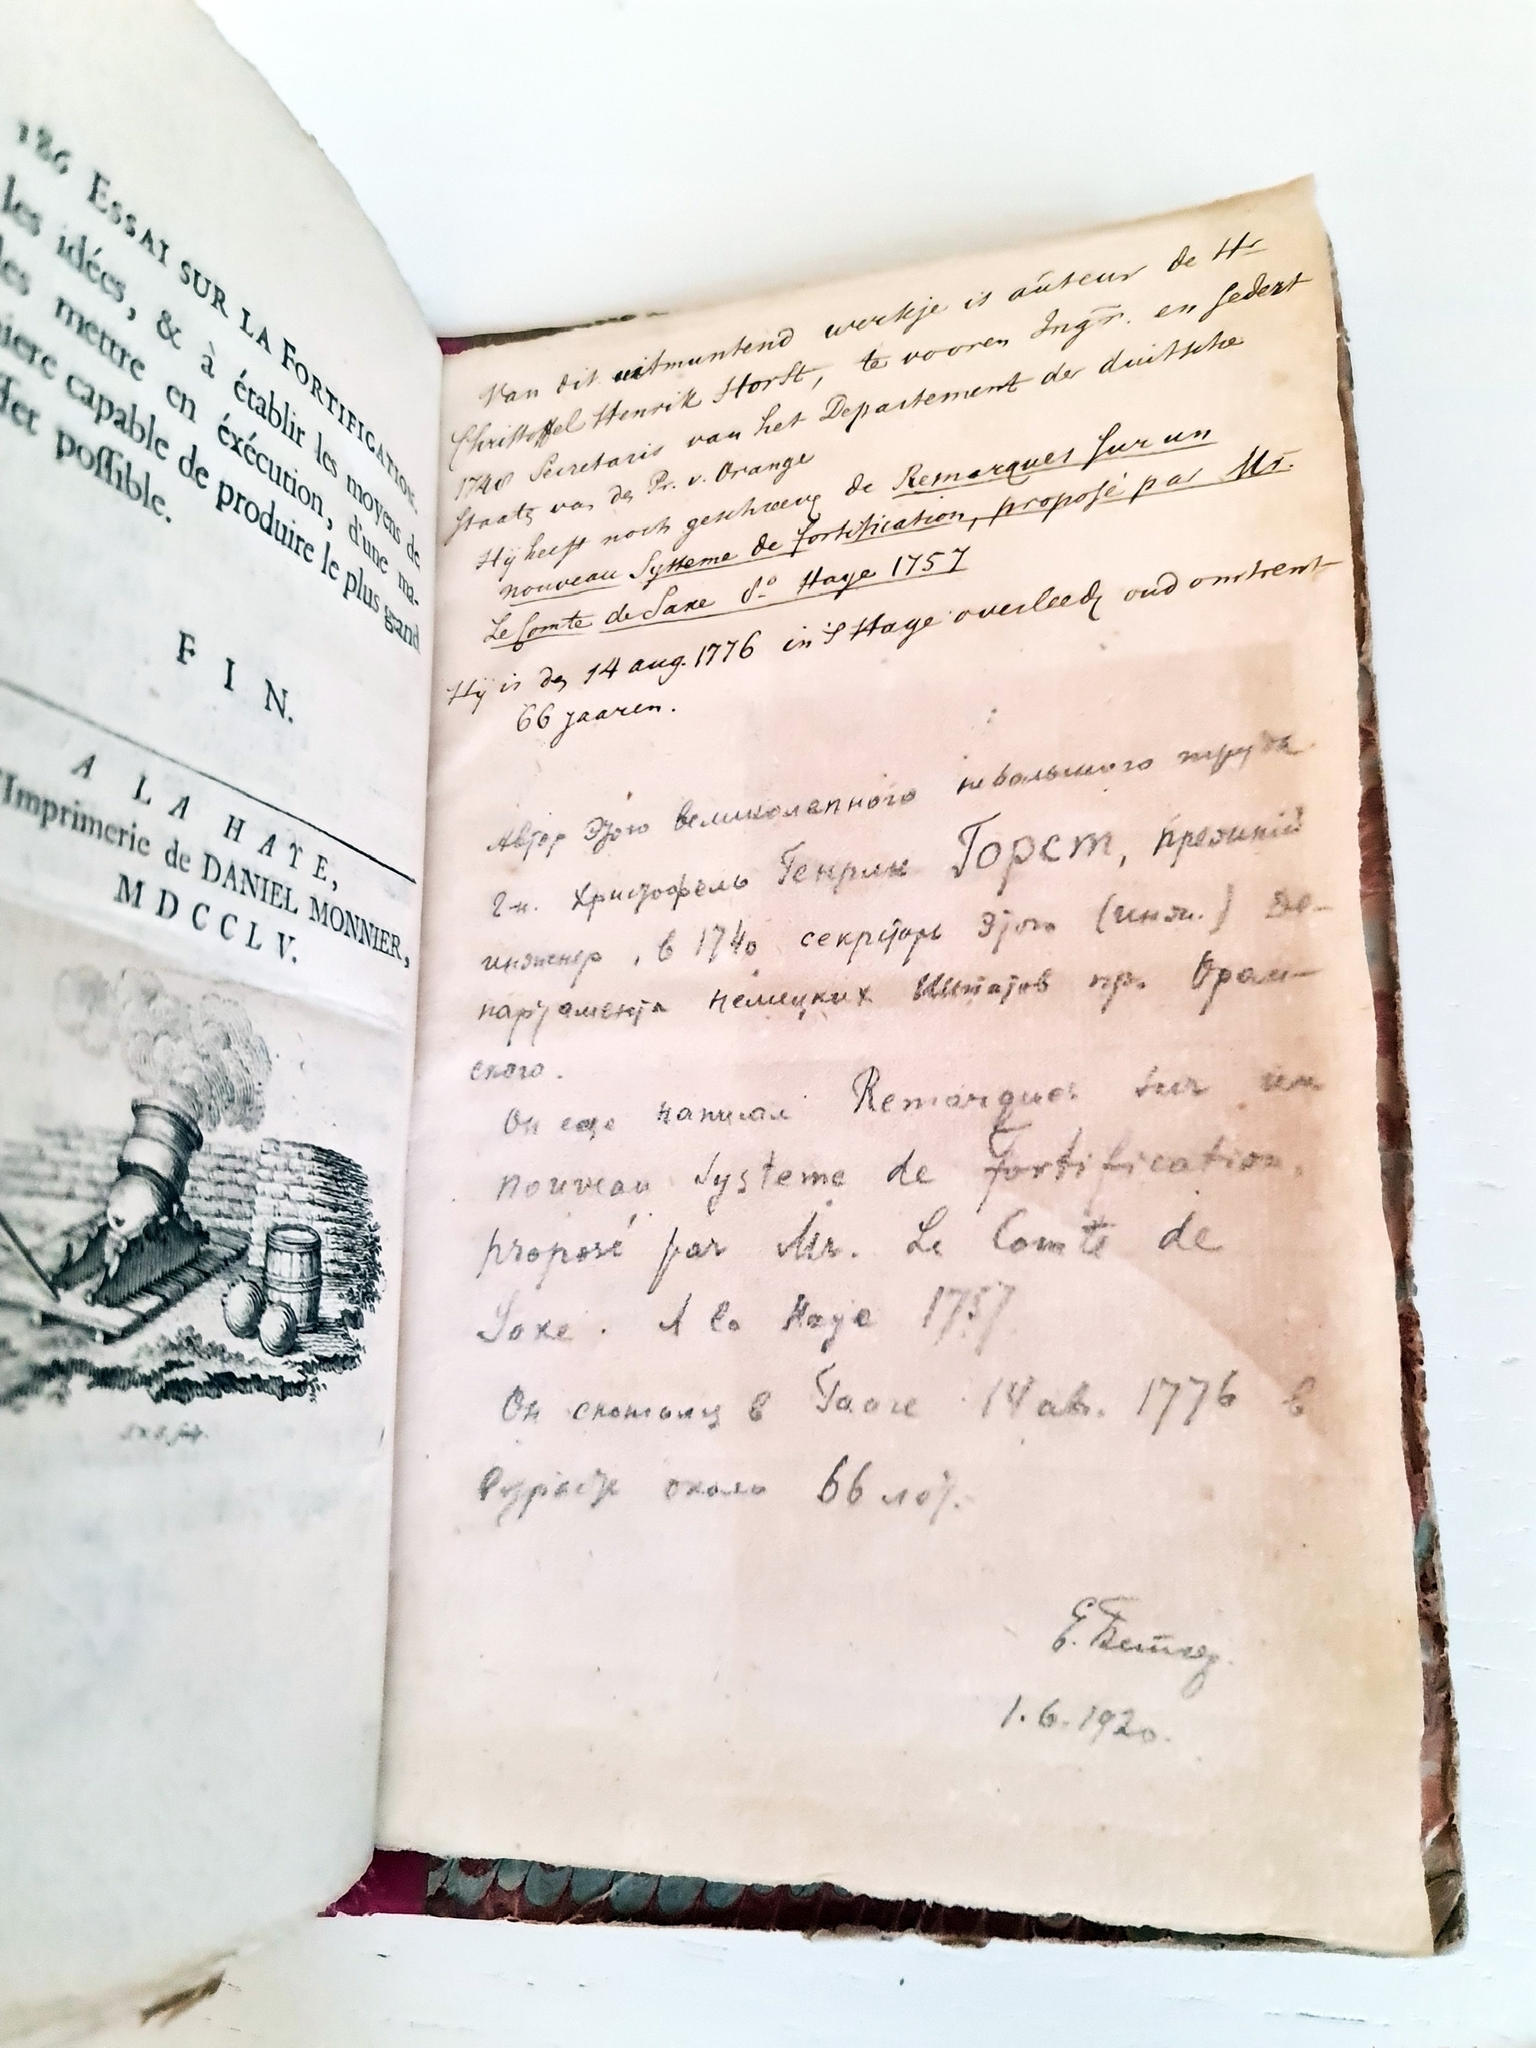 186 ESSAI SUR LA FORTIFICATION.
les idées, & à établir les moyens de
les mettre en éxécution, d'une ma-
niere capable de produire le plus grand
effet possible.
F I N.
A LA HAYE,
l'Imprimerie de DANIEL MONNIER,
MDCCLV.
Van dit uitmuntend werkje is aûteur de Hr
Christoffel Henrik Horst, te vooren Ingr. en sedert
1748 Secretaris van het Departement der duitsche
Staats van den Pr. v. Orange
Hij heeft noch geschreven de Remarques sur un
nouveau Systeme de fortification, proposé par Mr.
Le Comte de Saxe 8.o Haye 1757
Hij is den 14 aug. 1776 in 's Hage overleeden oud omtrent
66 jaaren.
Автор этого великолепного небольшого труда
гн. Христофель Генрик Горст, прежний
инженер, в 1740 секретарь этого (инж.) Де-
партамента немецких Штатов пр. Оран-
ского.
Он еще написал Remarques sur un
nouveau Systeme de fortification,
proposé par Mr. Le Comte de
Saxe. A la Haye 1757
Он скончался в Гааге 14 ав. 1776 в
возрасте около 66 лет.
1.6.1920.